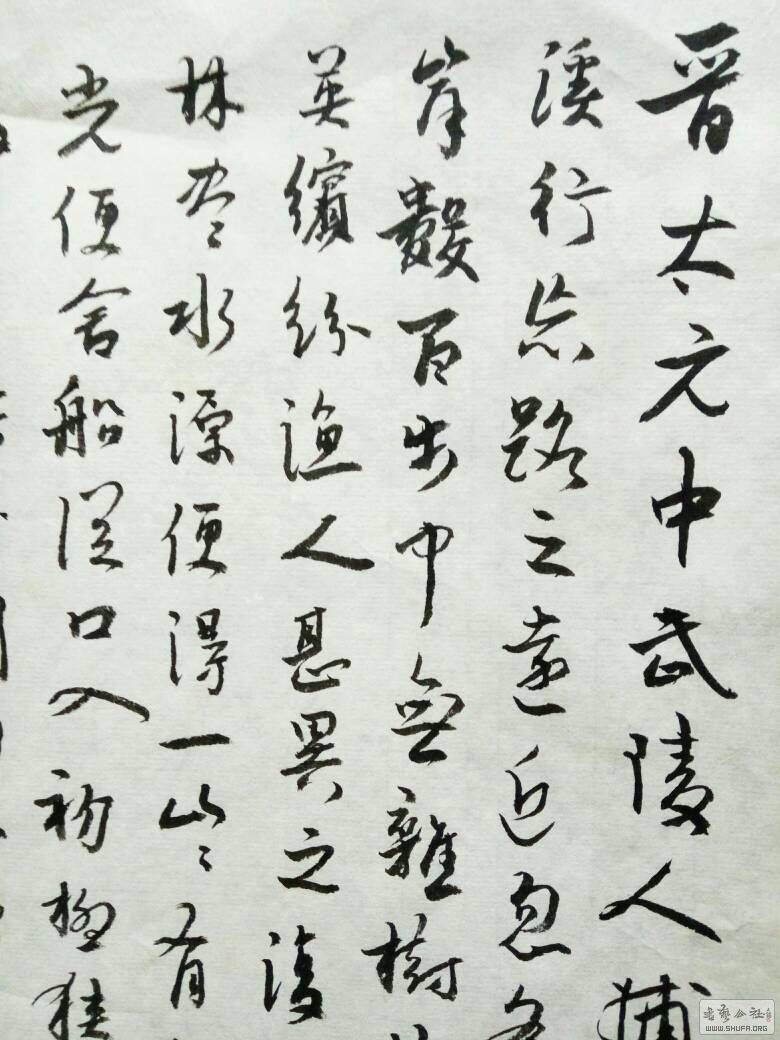 晋太元中武陵人捕
溪行忘路之遠近忽
岸數百步中無雜樹
英繽紛漁人甚異之復
林尽水源便得一山〻有
光便舍船從口入初極狹
书艺公社
WWW.SHUFA.ORG